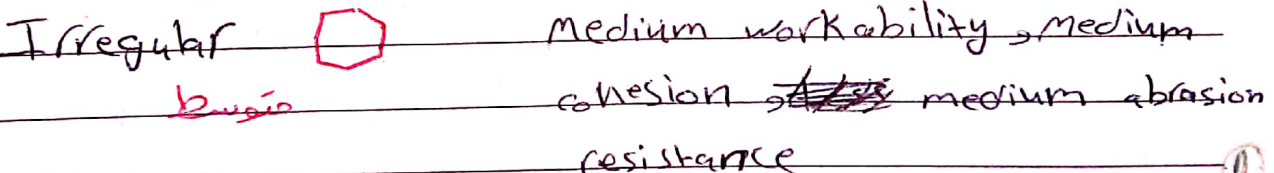 Irregular medium workability, medium
متوسط cohesion, medium abrasion
resistance